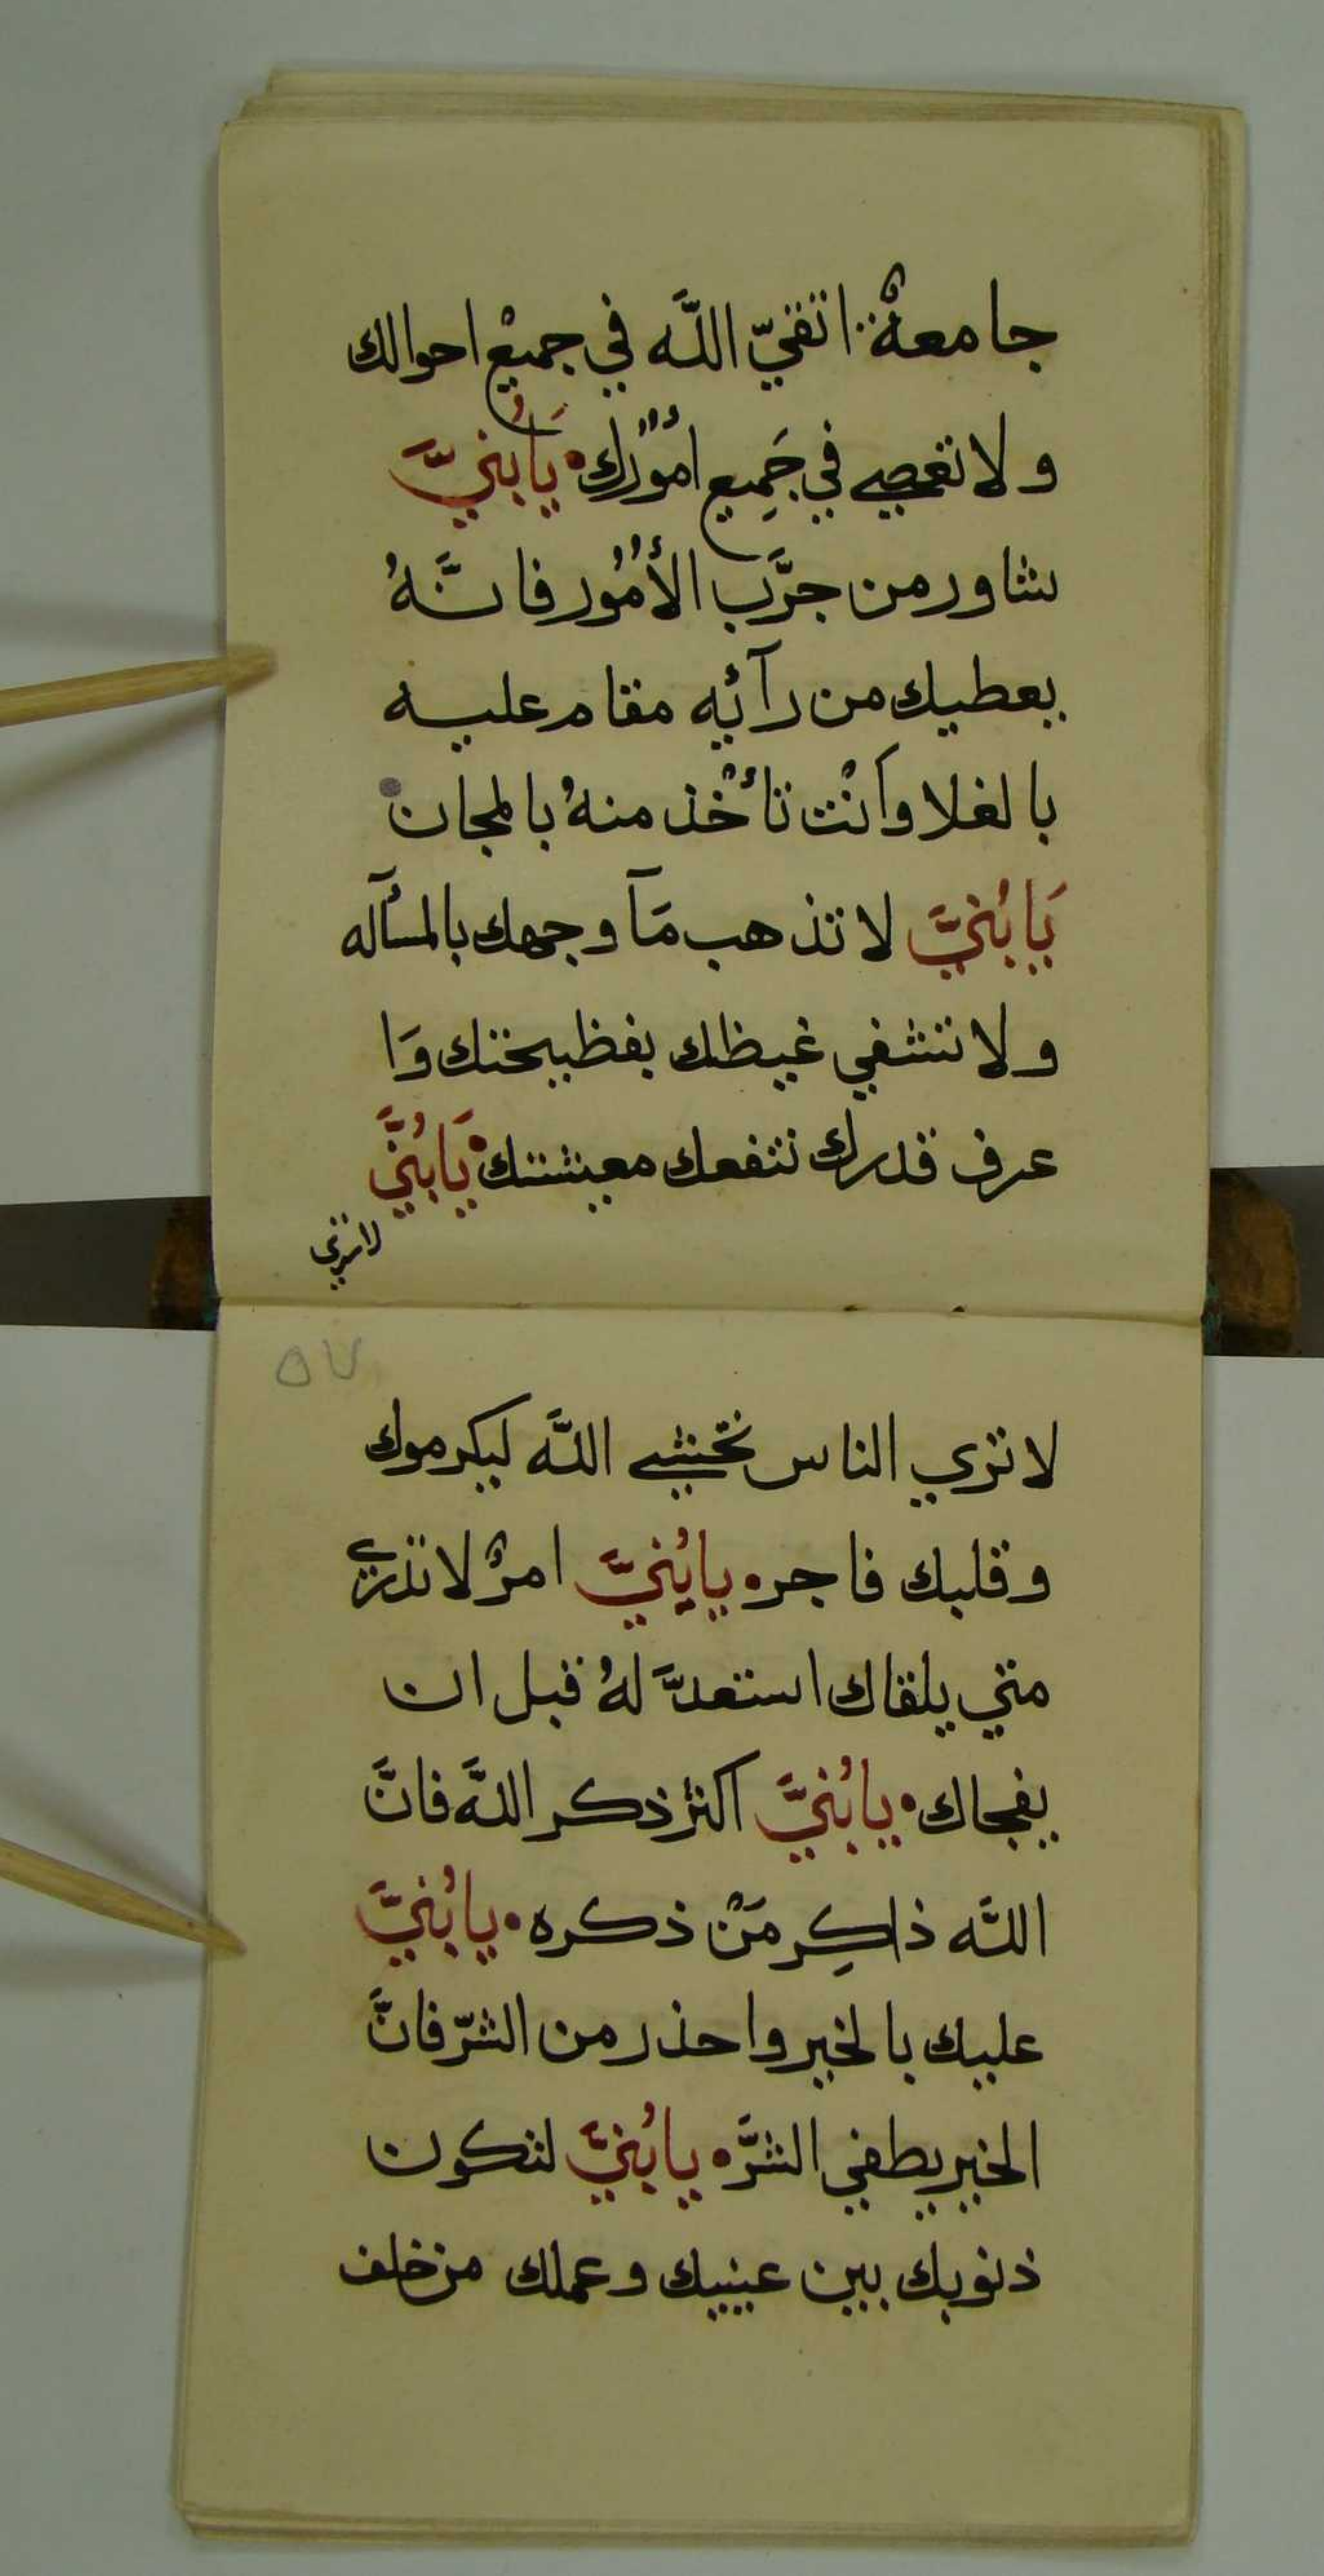 جامعةٌ اتقيّ اللَّه في جميعْ احوالك
ولا تغصي في جَمِيع امُوُرك • يَابُنيَّ
شاور من جرَّب الأمُوُر فانَّهُ
يعطيك من رآئه مقام عليه
بالغلا وأنْت تأخْذ منهُ بالمجان
يَابُنيَّ لا تذهب مَآ وجهك بالمسأله
ولا تشفي غيظك بفظيحتك وَا
عرف قدرك تنفعك معيشتك • يَابُنيَّ
لا تري
٥٧
لا تري الناس تخشي اللَّه ليكرموك
وقلبك فاجر • يابُنيَّ امرٌ لا تدري
متي يلقاك استعدَّ لهُ قبل ان
يفجاك • يابُنيَّ اكثر ذكر اللَّه فانَّ
اللَّه ذاكِر مَنْ ذكره • يابُنيَّ
عليك بالخير واحذر من الشرّ فانَّ
الخير يطفي الشرَّ • يابُنيَّ لتكون
ذنوبك بين عينيك وعملك من خلف